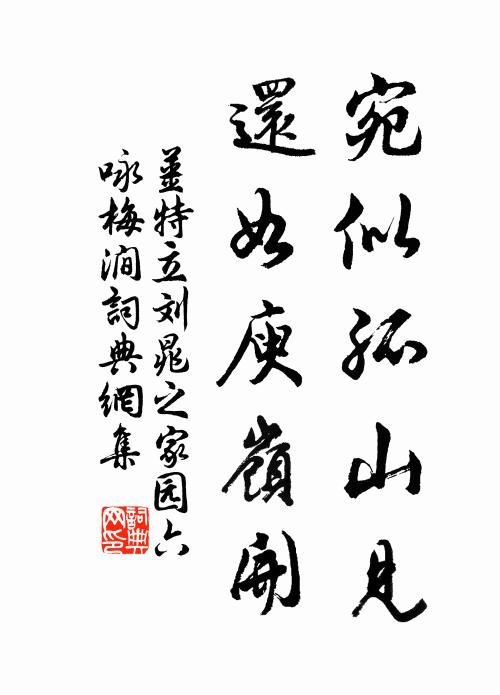 宛似孤山見
還如庾嶺開
姜特立刘晁之家园六
咏梅澗詞典網集
詞典网印